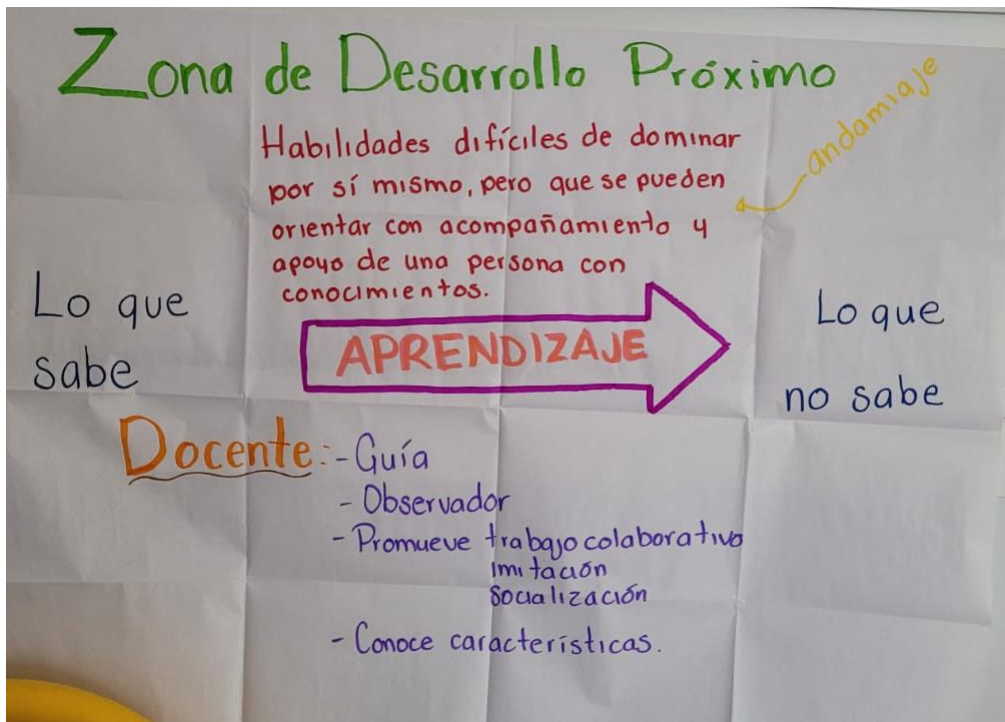 Zona de Desarrollo Próximo
andamiaje
Habilidades difíciles de dominar
por sí mismo, pero que se pueden
orientar con acompañamiento y
apoyo de una persona con
conocimientos.
Lo que
sabe
APRENDIZAJE
Lo que
no sabe
Docente: - Guía
- Observador
- Promueve trabajo colaborativo
imitación
socialización
- Conoce características.